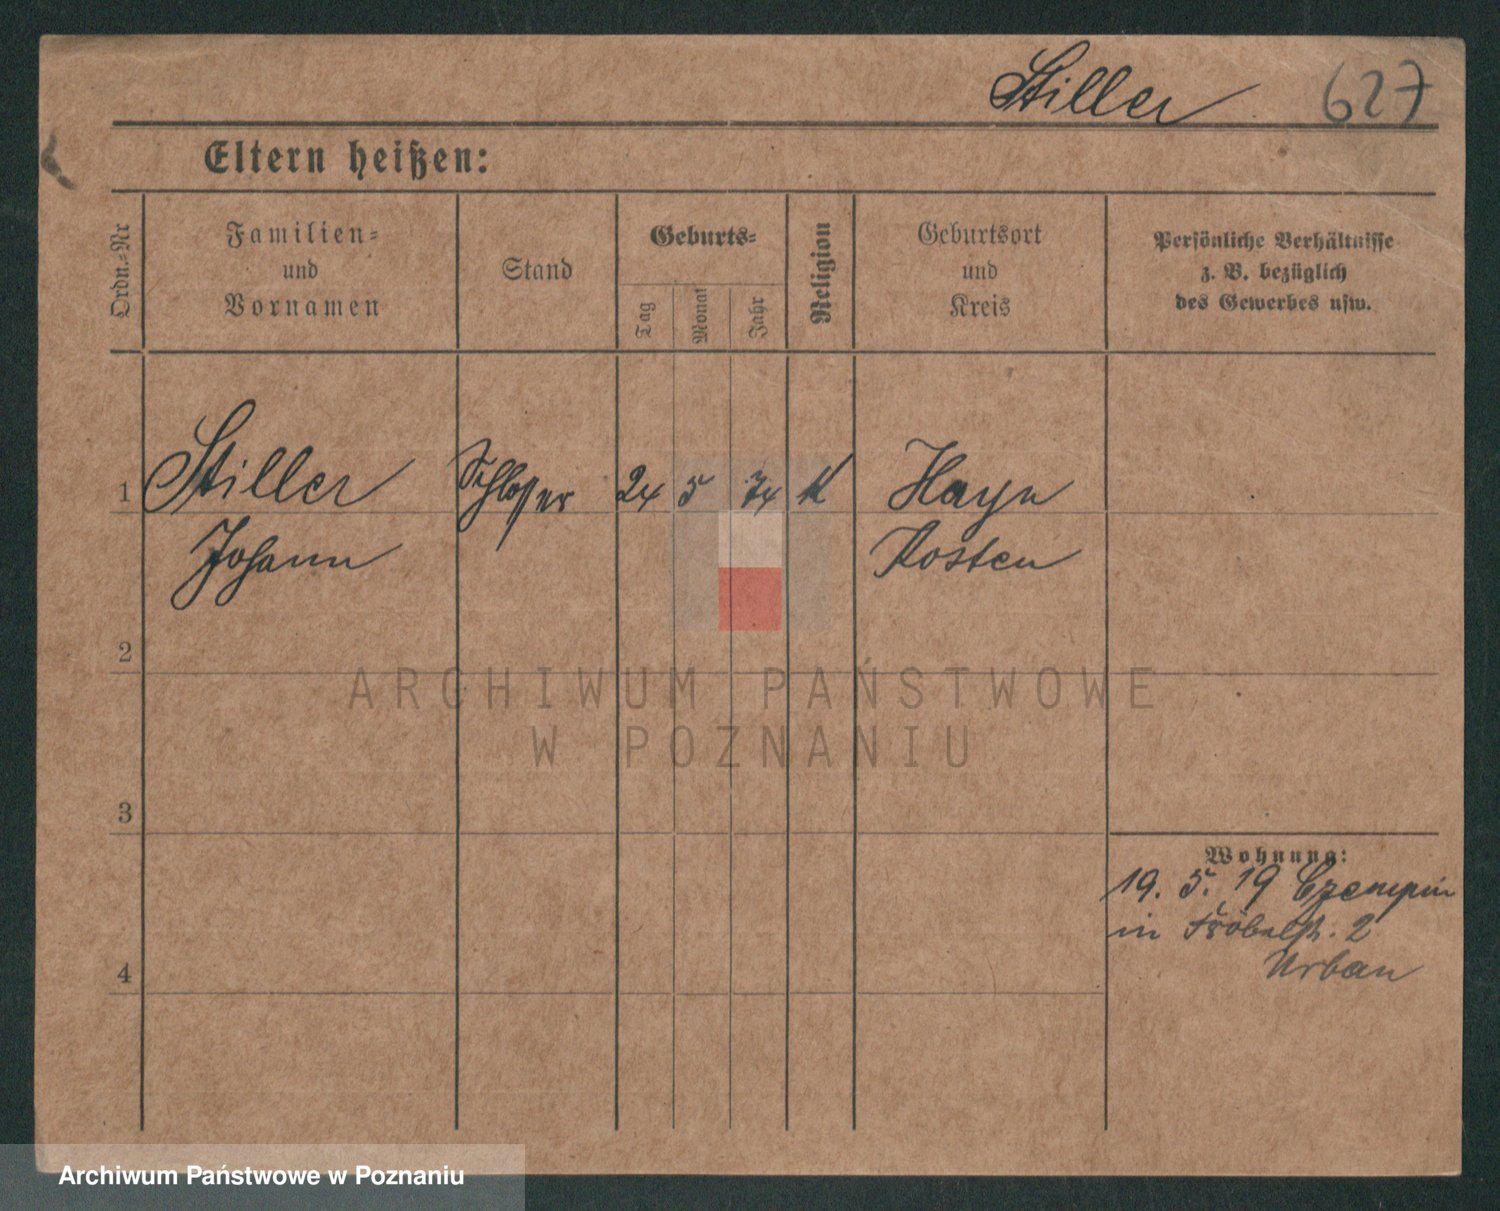 Stiller 627
Eltern heißen:
Ordn.-Nr
Familien-
und
Vornamen
Stand
Geburts-
Tag
Monat
Jahr
Religion
Geburtsort
und
Kreis
Persönliche Verhältnisse
z. B. bezüglich
des Gewerbes usw.
1 Stiller Schlosser 24 5 74 K Hayn
Johann Kosten
2
ARCHIWUM PAŃSTWOWE
W POZNANIU
3
Wohnung:
19. 5. 19 Czempin
in Fröbelstr. 2
4 Urban
Archiwum Państwowe w Poznaniu